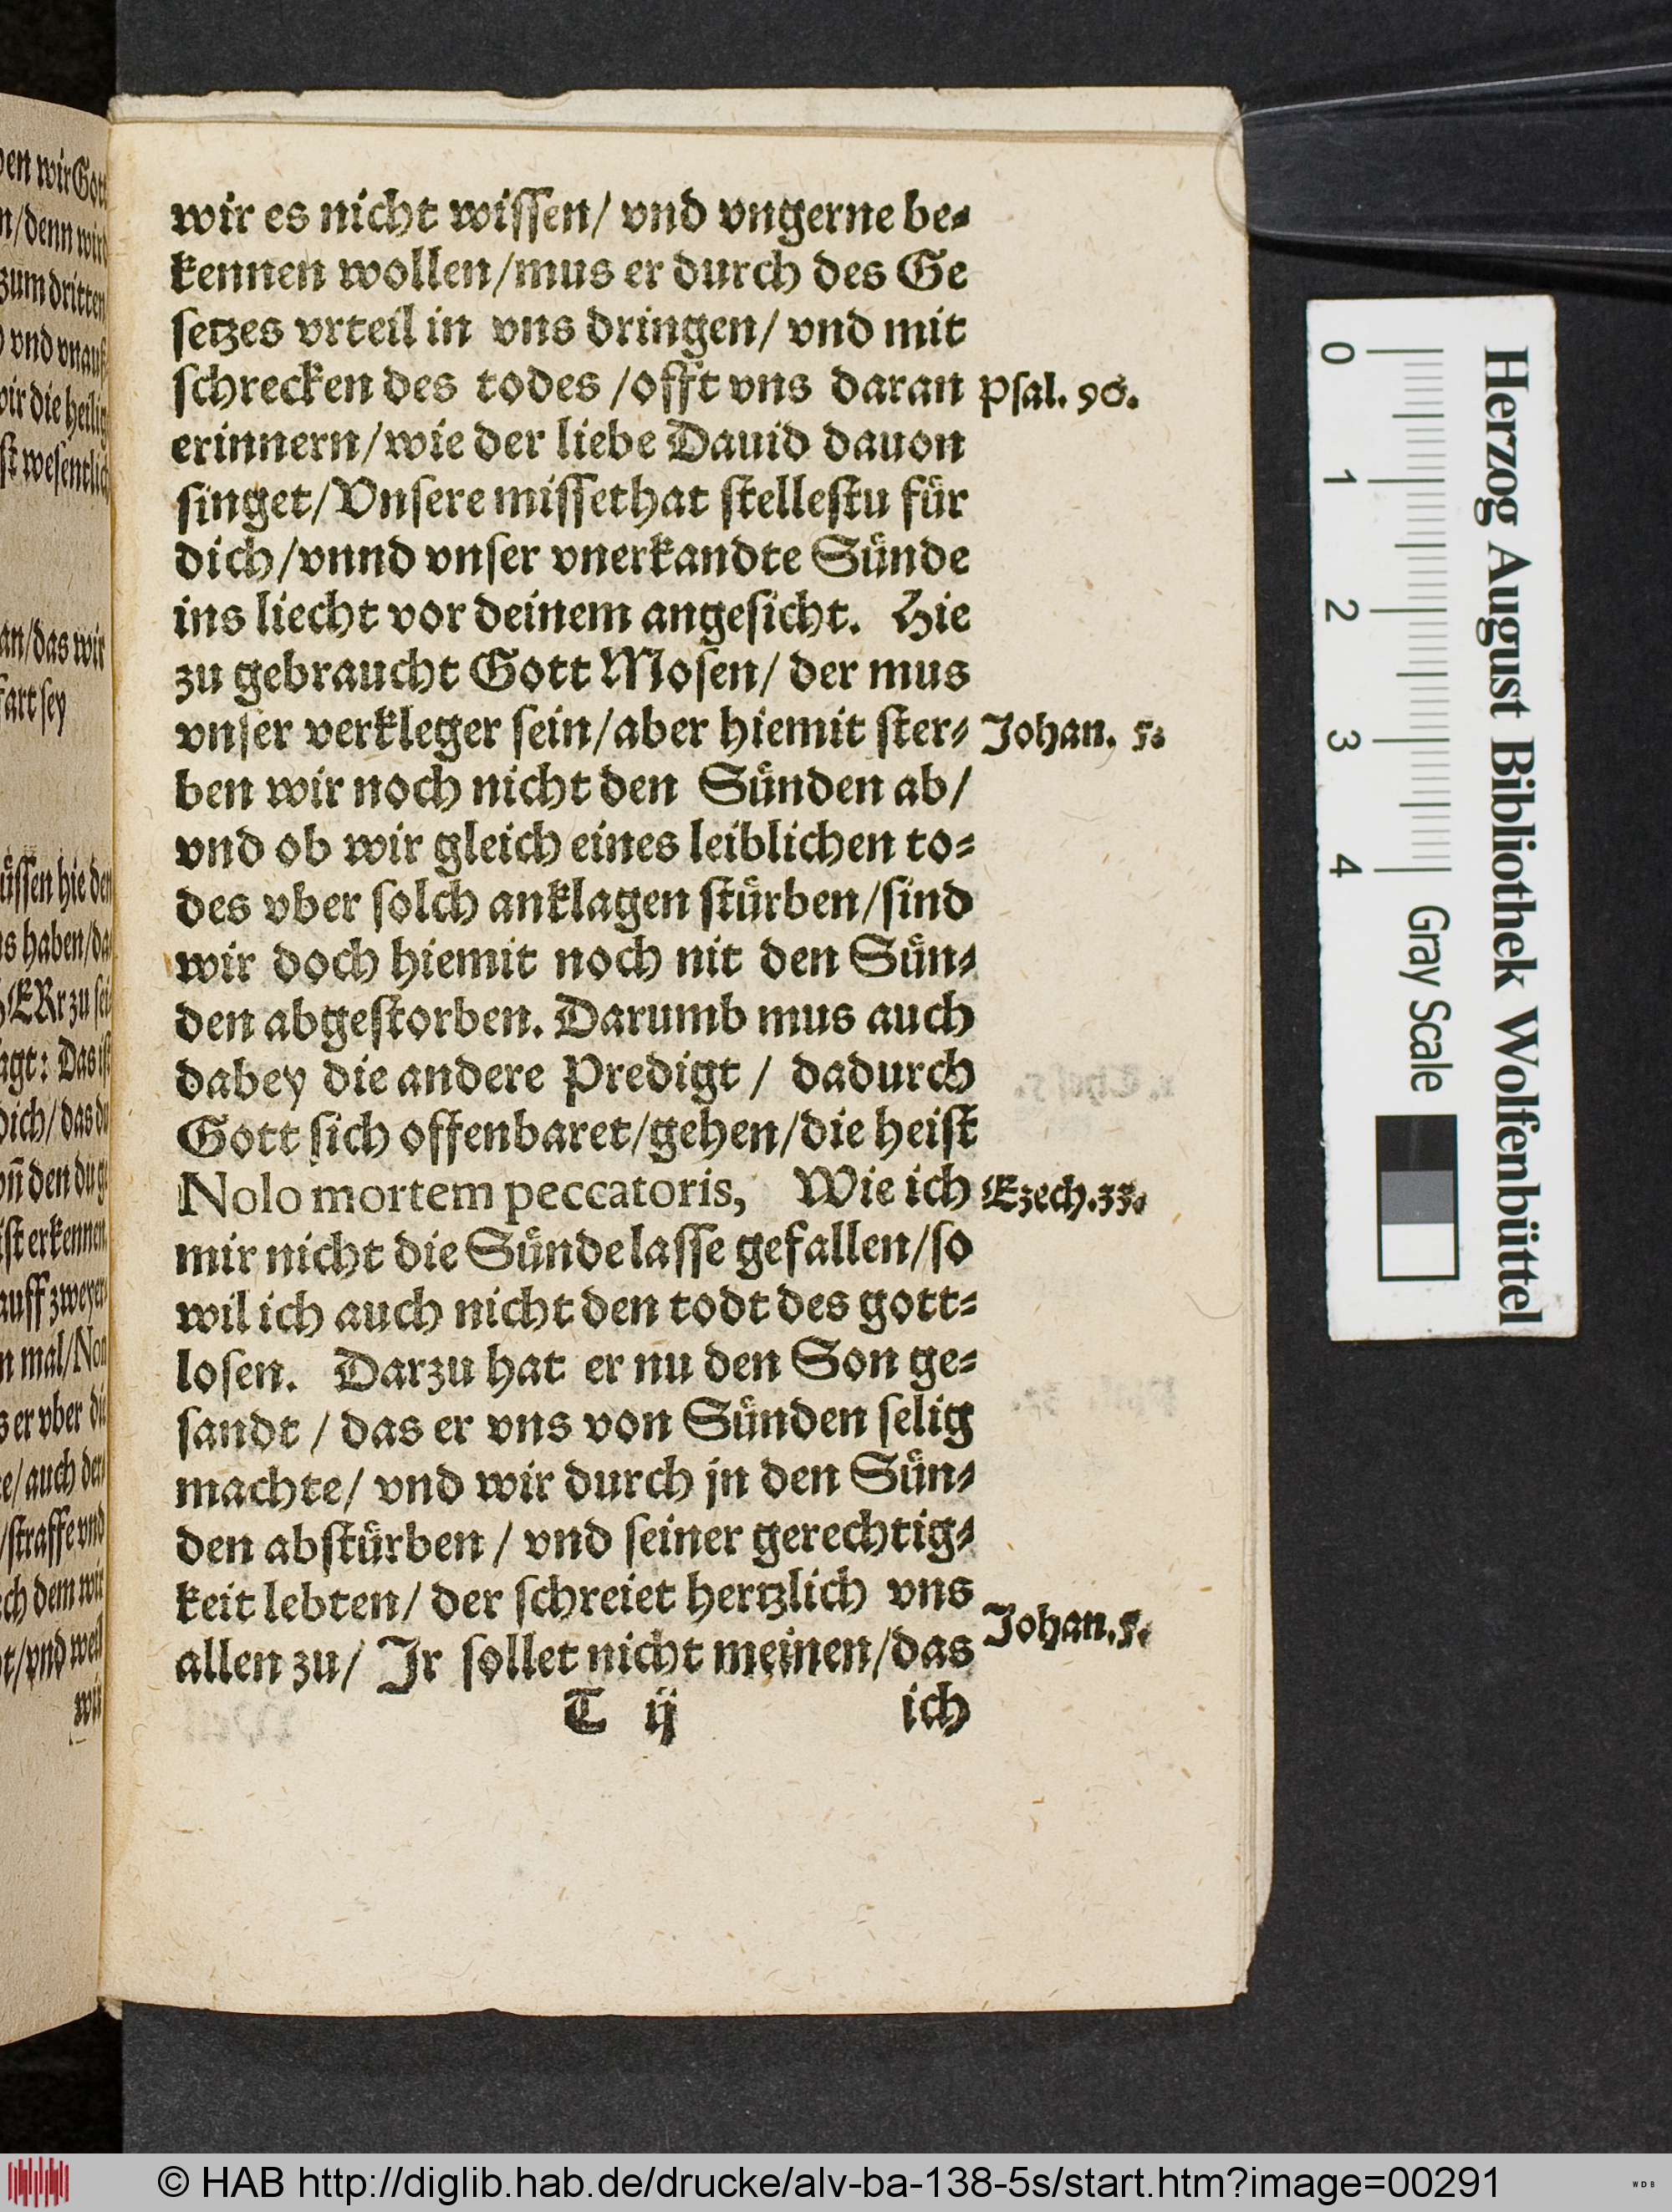 wir es nicht wissen/ vnd vngerne be-
kennen wollen/mus er durch des Ge
setzes vrteil in vns dringen/ vnd mit
schrecken des todes /offt vns daran Psal. 90.
erinnern/wie der liebe Dauid dauon
singet/Vnsere missethat stellestu für
dich/vnnd vnser vnerkandte Sünde
ins liecht vor deinem angesicht. Hie
zu gebraucht Gott Mosen/ der mus
vnser verkleger sein/aber hiemit ster- Johan. 5.
ben wir noch nicht den Sünden ab/
vnd ob wir gleich eines leiblichen to-
des vber solch anklagen stürben/sind
wir doch hiemit noch nit den Sün-
den abgestorben. Darumb mus auch
dabey die andere Predigt / dadurch
Gott sich offenbaret/gehen/die heist
Nolo mortem peccatoris, Wie ich Ezech.33.
mir nicht die Sünde lasse gefallen/so
wil ich auch nicht den todt des gott-
losen. Darzu hat er nu den Son ge-
sandt / das er vns von Sünden selig
machte/ vnd wir durch jn den Sün-
den abstürben / vnd seiner gerechtig-
keit lebten/ der schreiet hertzlich vns
allen zu/ Jr sollet nicht meinen/das Johan.5.
T ij ich
Herzog August Bibliothek Wolfenbüttel
0 1 2 3 4 Gray Scale
© HAB http://diglib.hab.de/drucke/alv-ba-138-5s/start.htm?image=00291
WDB